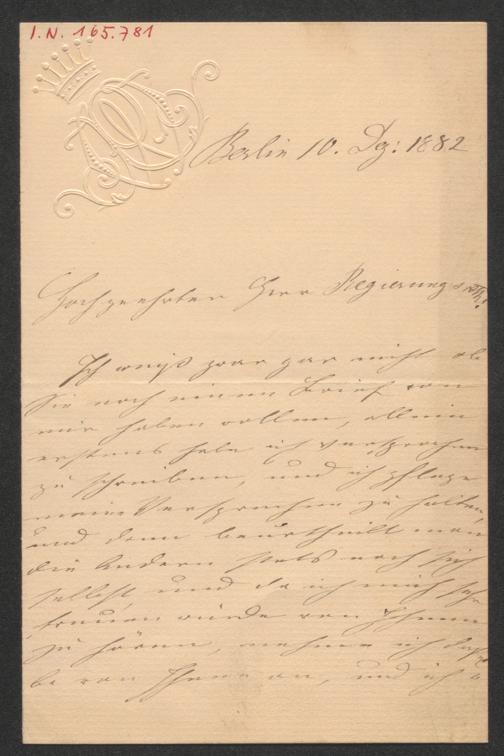 I.N. 165.781
Berlin 10. Dez: 1882
Hochgeehrter Herr Regierungsrath!
Ich weiß zwar gar nicht ob
Sie noch einen Brief von
mir haben wollen, allein
erstens habe ich versprochen
zu schreiben, und ich pflege
meine Versprechen zu halten,
und dann beurtheilt man
die Andern stets nach sich
selbst, und da ich mich sehr
freuen würde von Ihnen
zu hören, nehme ich
von Ihnen an, und ich